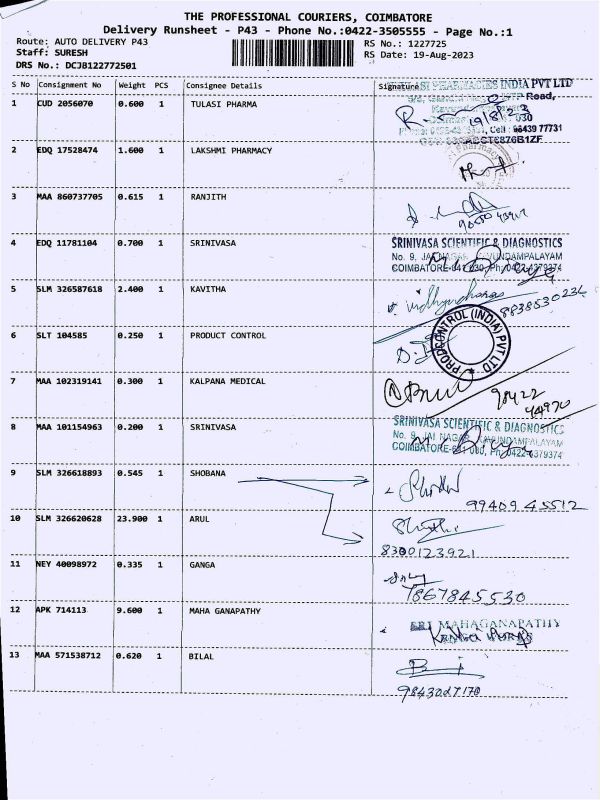 THE PROFESSIONAL COURIERS, COIMBATORE
Delivery Runsheet - P43 - Phone No.:0422-3505555 - Page No.:1
Route: AUTO DELIVERY P43 RS No.: 1227725
Staff: SURESH RS Date: 19-Aug-2023
DRS No.: DCJB122772501
S No Consignment No Weight PCS Consignee Details Signature
1 CUD 2056070 0.600 1 TULASI PHARMA
PHARMACIES INDIA PVT LTD
Road,
19/8/23 030
Cell : 98439 77731
2 EDQ 17528474 1.600 1 LAKSHMI PHARMACY
3 MAA 860737705 0.615 1 RANJITH
4 EDQ 11781104 0.700 1 SRINIVASA
SRINIVASA SCIENTIFIC & DIAGNOSTICS
No. 9, JAI NAGAR, KAVUNDAMPALAYAM
COIMBATORE-641 030, Ph: 0422-4379374
5 SLM 326587618 2.400 1 KAVITHA
8838530234
6 SLT 104585 0.250 1 PRODUCT CONTROL
PRODCONTROL (INDIA) PVT LTD
7 MAA 102319141 0.300 1 KALPANA MEDICAL
98422
44970
8 MAA 101154963 0.200 1 SRINIVASA
SRINIVASA SCIENTIFIC & DIAGNOSTICS
No. 9, JAI NAGAR, KAVUNDAMPALAYAM
COIMBATORE-641 030, Ph: 0422-4379374
9 SLM 326618893 0.545 1 SHOBANA
99409 45512
10 SLM 326620628 23.900 1 ARUL
8300123921
11 NEY 40098972 0.335 1 GANGA
7867845530
12 APK 714113 9.600 1 MAHA GANAPATHY
SRI MAHAGANAPATHY
13 MAA 571538712 0.620 1 BILAL